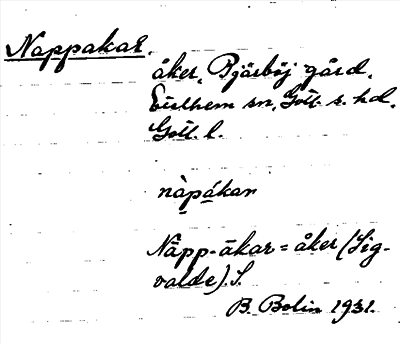 Nappakar.
åker, Bjärböj gård,
Eisthem sn, Gotl. s. hd,
Gotl. l.
nàpákan
Näpp-åkar = åker (Sig-
valde). S.
B. Bolin 1931.